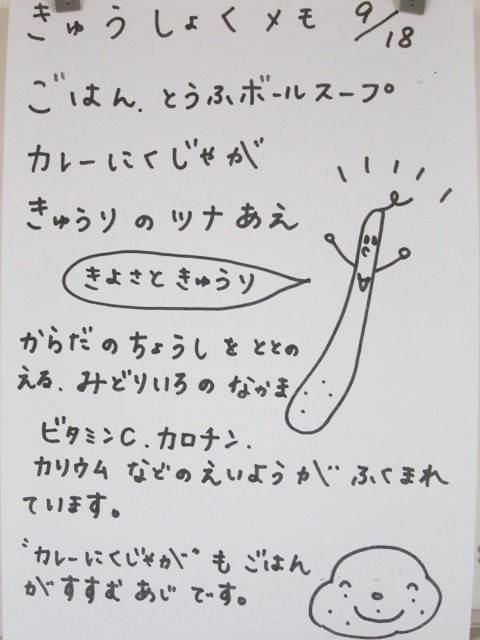 きゅうしょくメモ 9/18
ごはん、とうふボールスープ
カレーにくじゃが
きゅうりのツナあえ
きよさときゅうり
からだのちょうしをととの
える、みどりいろのなかま
ビタミンC、カロチン、
カリウムなどのえいようがふくまれ
ています。
"カレーにくじゃが"もごはん
がすすむあじです。